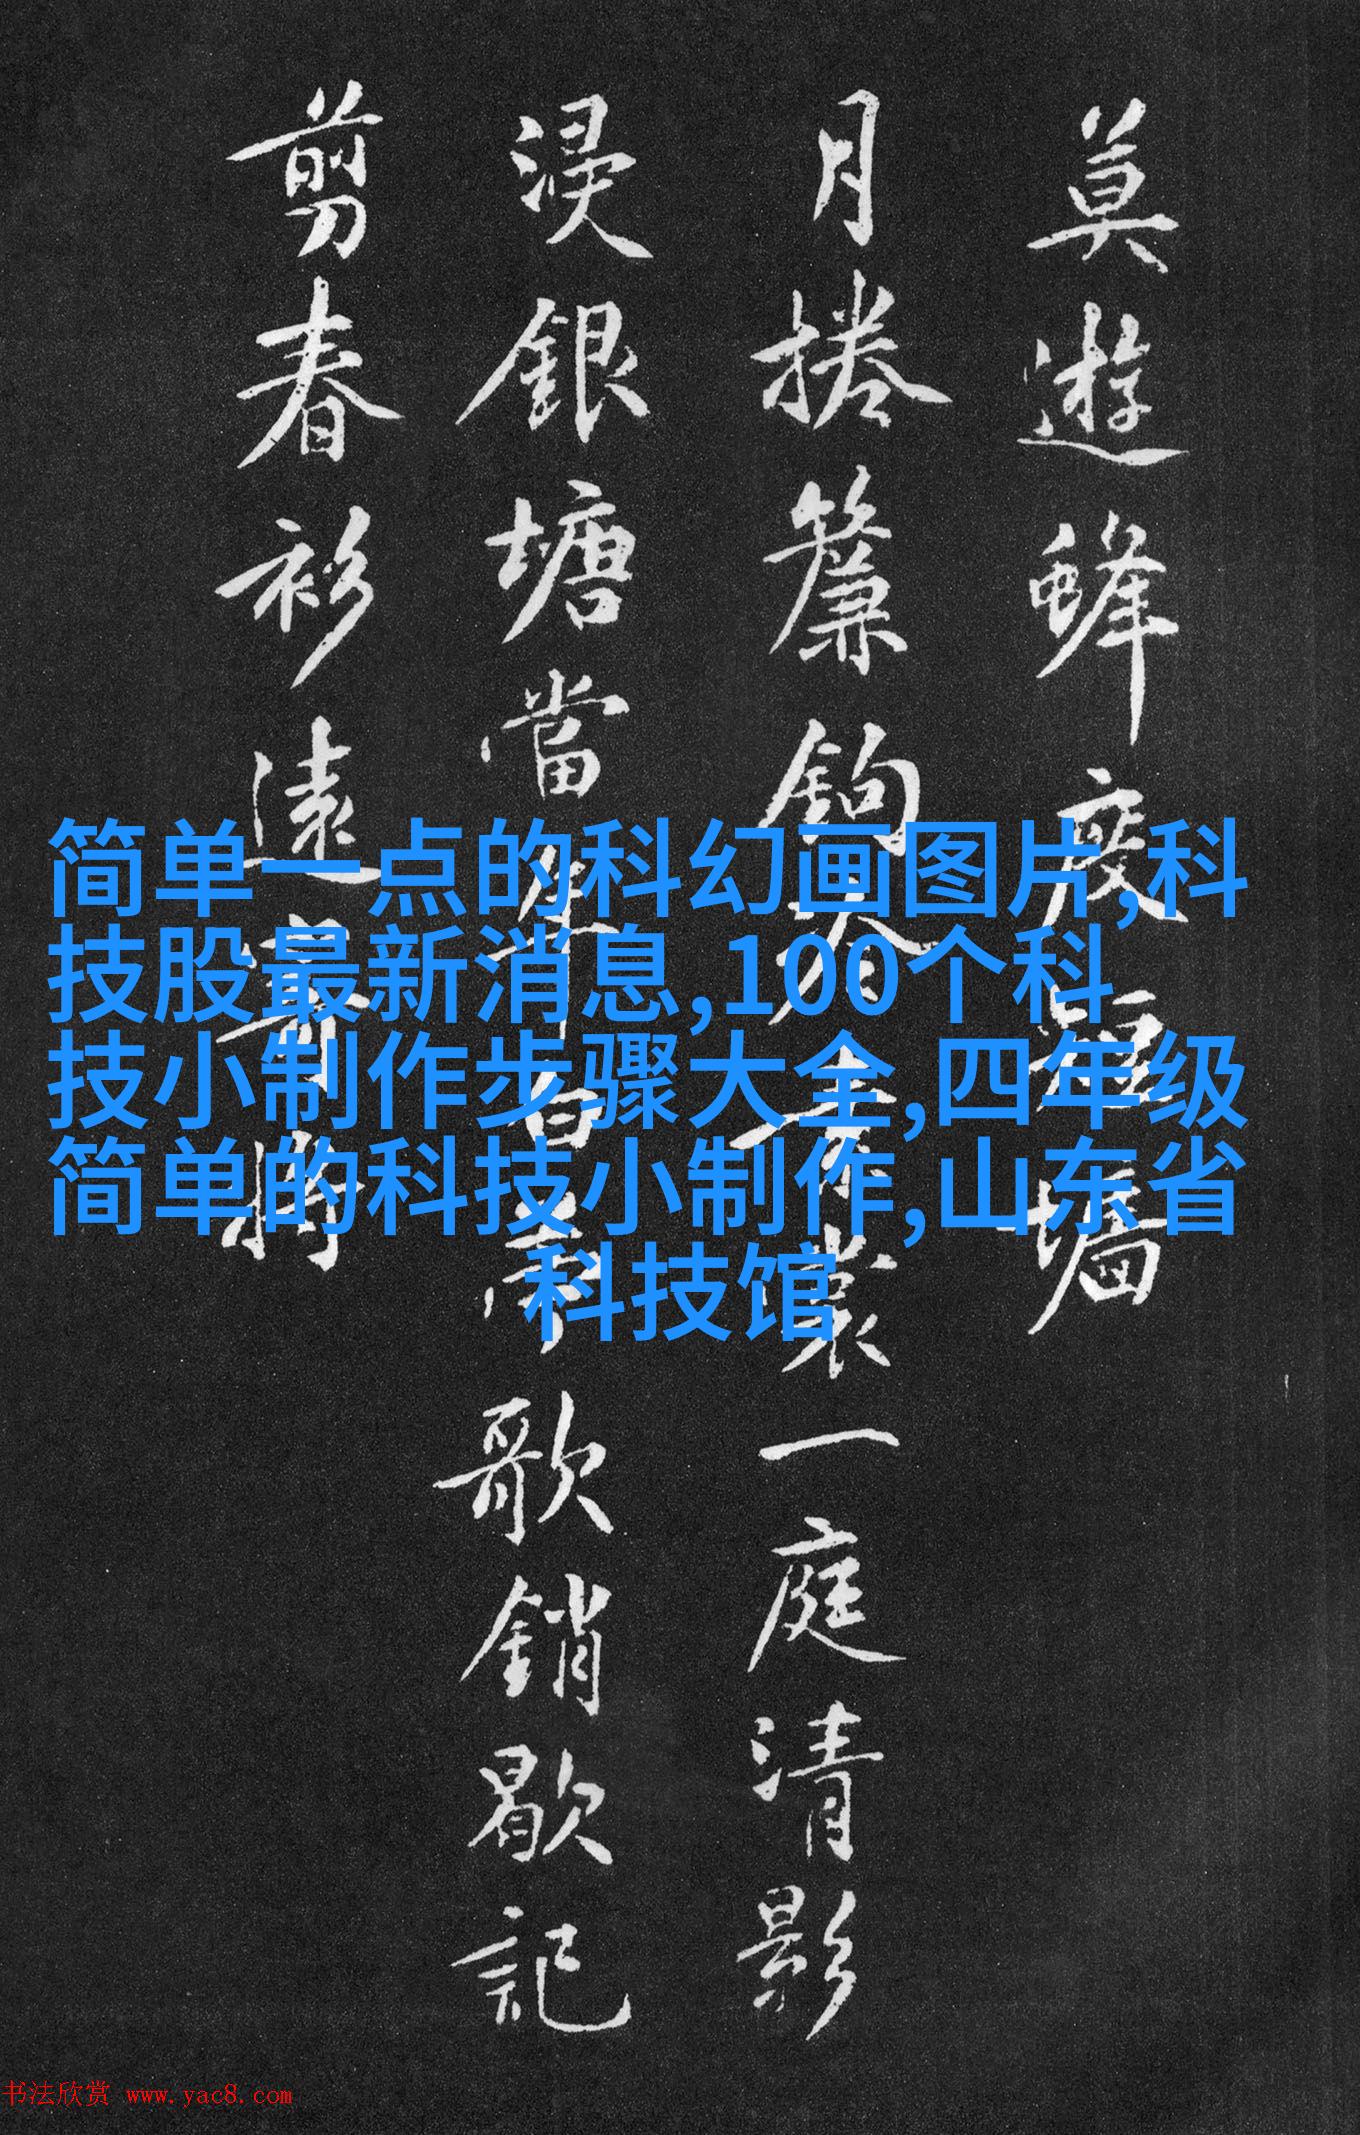 简单一点的科幻画图片,科
技股最新消息,100个科
技小制作步骤大全,四年级
简单的科技小制作,山东省
科技馆
莫遊蜂度墻
月捲簾鉤一庭清影
浸銀塘當年白雪歌銷歇記
剪春衫遠寄將
书法欣赏 www.yac8.com